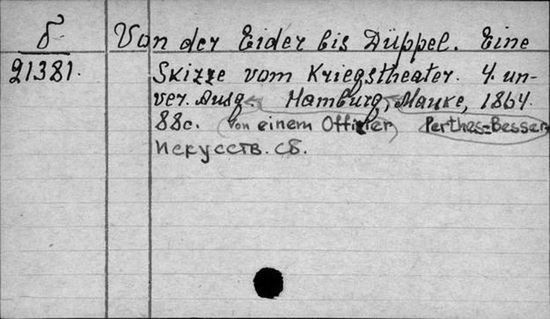 б Von der Eider bis Düppel. Eine
21381. Skizze vom Kriegstheater. 4. un-
ver. Ausg Hamburg, Mauke, 1864.
88c. von einem Offizier Perthes-Besser
Искусств. сб.